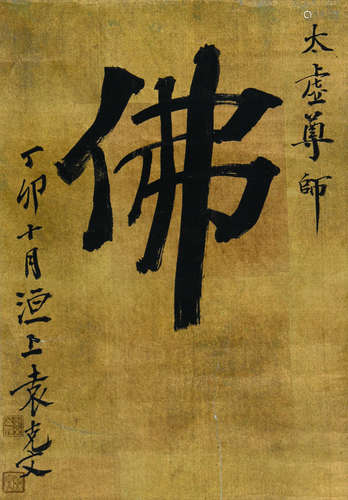 太虛尊師
佛
丁卯十月洹上袁克文